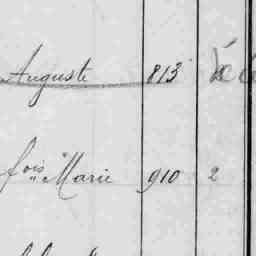 Auguste 813
fois Marie 910 2